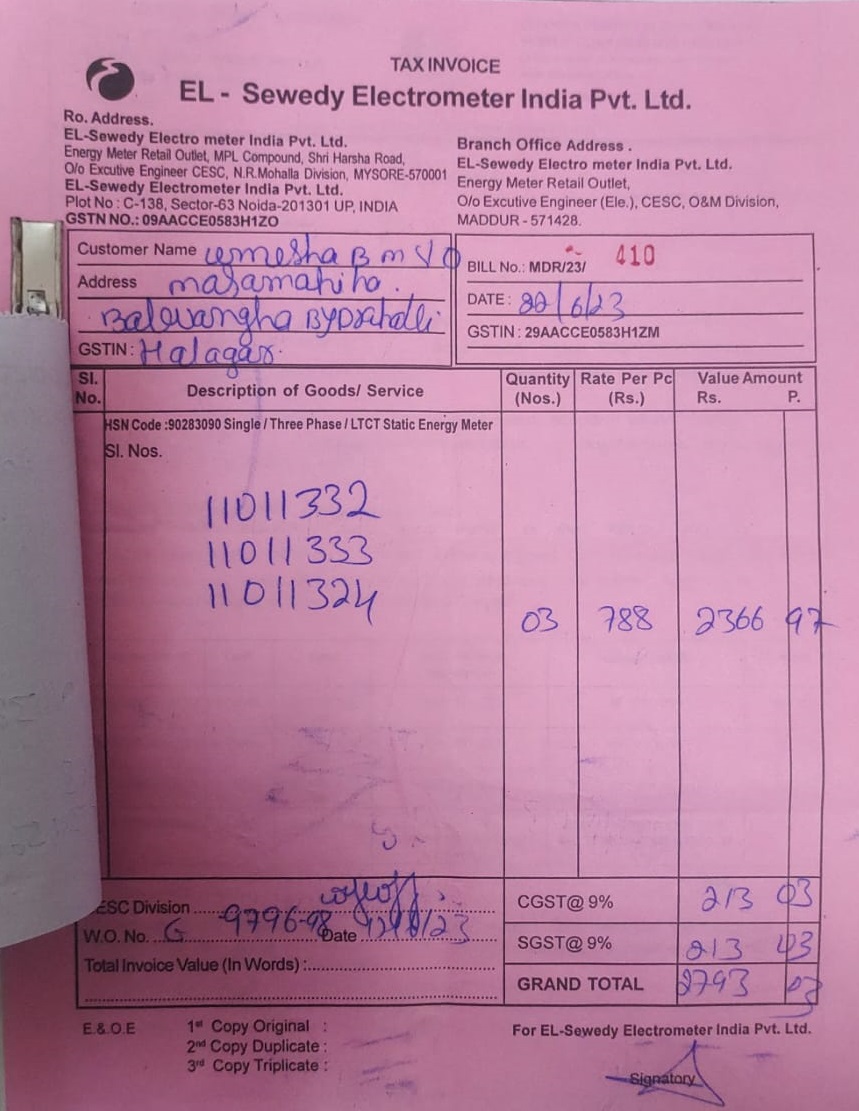 TAX INVOICE
EL - Sewedy Electrometer India Pvt. Ltd.
Ro. Address.
EL-Sewedy Electro meter India Pvt. Ltd.
Energy Meter Retail Outlet, MPL Compound, Shri Harsha Road,
O/o Excutive Engineer CESC, N.R.Mohalla Division, MYSORE-570001
EL-Sewedy Electrometer India Pvt. Ltd.
Plot No : C-138, Sector-63 Noida-201301 UP, INDIA
GSTN NO.: 09AACCE0583H1ZO
Branch Office Address .
EL-Sewedy Electro meter India Pvt. Ltd.
Energy Meter Retail Outlet,
O/o Excutive Engineer (Ele.), CESC, O&M Division,
MADDUR - 571428.
Customer Name umesha B m
Address
GSTIN : Halagar.
BILL No.: MDR/23/ 410
DATE : 22/6/23
GSTIN : 29AACCE0583H1ZM
Sl. No. Description of Goods/ Service Quantity (Nos.) Rate Per Pc (Rs.) Value Amount Rs. P.
HSN Code :90283090 Single / Three Phase / LTCT Static Energy Meter
Sl. Nos.
11011332
11011333
11011324
03 788 2366 97
ESC Division
W.O. No. G 9796-98 Date
Total Invoice Value (In Words) :
CGST@ 9% 213 03
SGST@ 9% 213 03
GRAND TOTAL 2793 03
E.& O.E
1st Copy Original :
2nd Copy Duplicate :
3rd Copy Triplicate :
For EL-Sewedy Electrometer India Pvt. Ltd.
Signatory